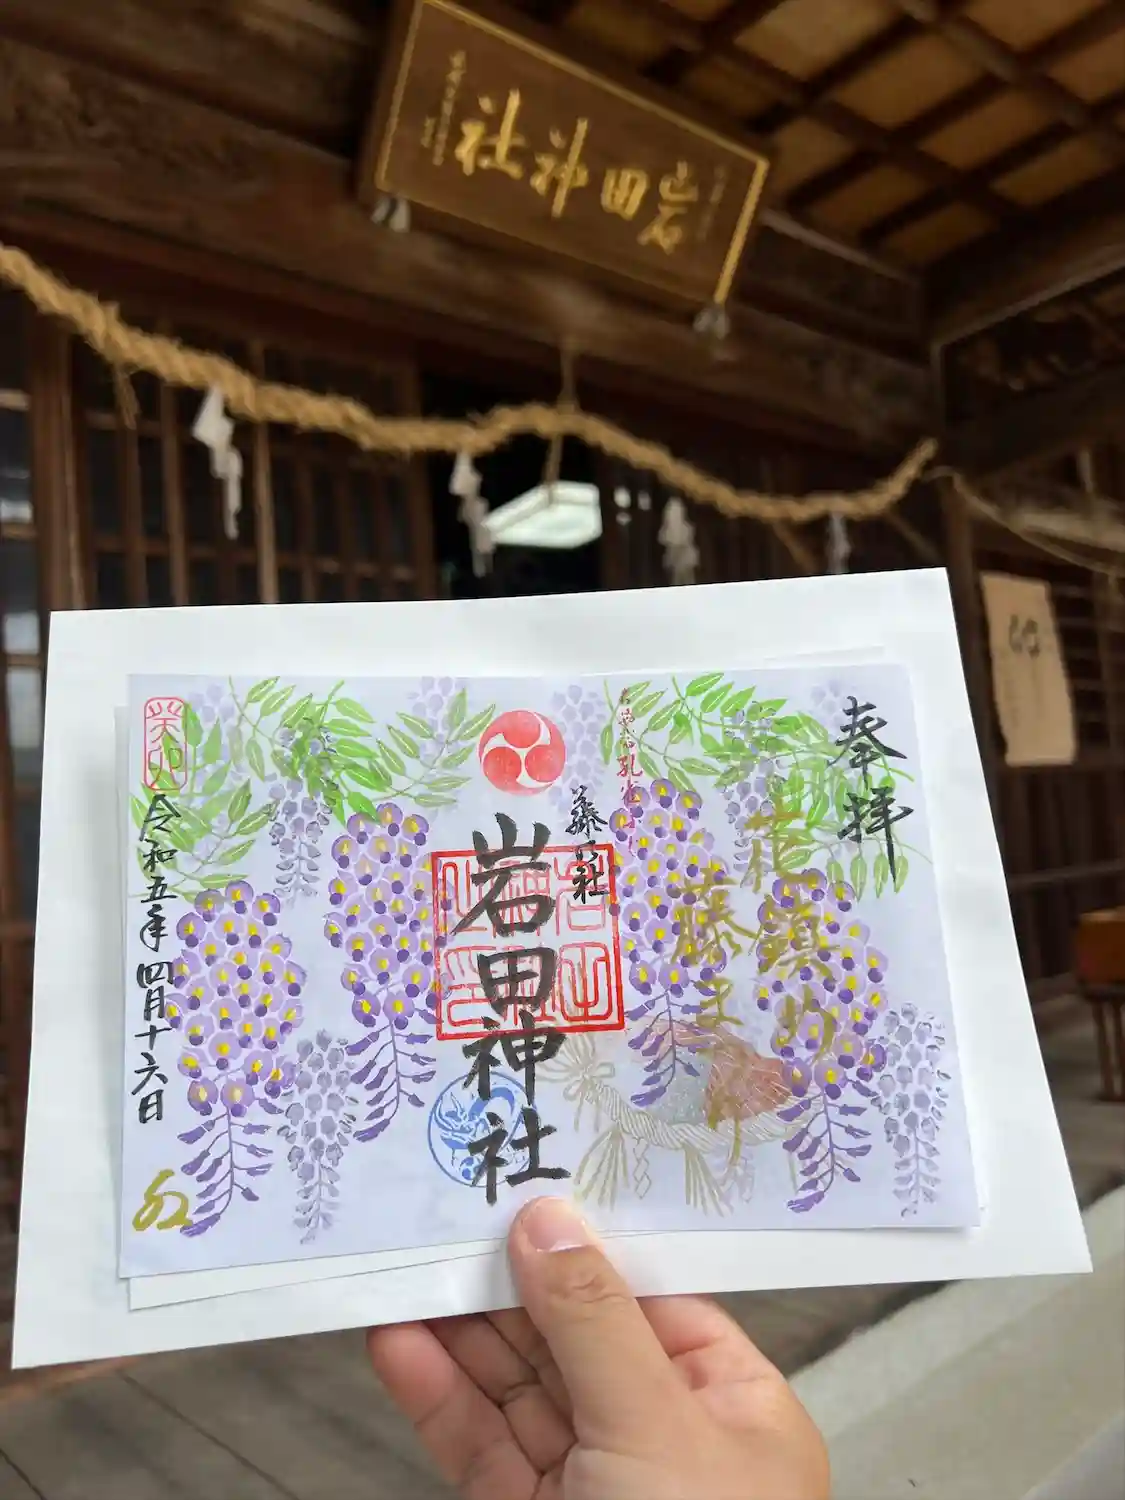 岩田神社
奉拝
花鎮め
藤まつり
孔雀
藤の社
岩田神社
癸卯
令和五年四月十六日